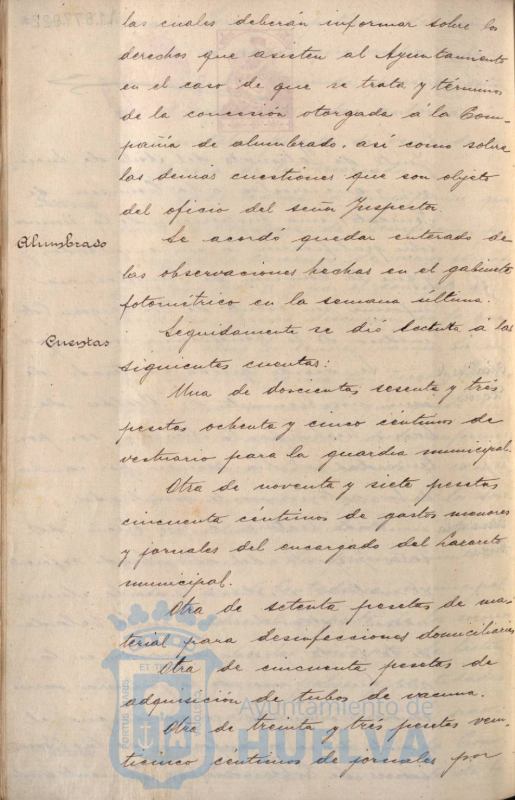 las cuales deberán informar sobre los
derechos que asisten al Ayuntamiento
en el caso de que se trata y términos
de la concesión otorgada á la Com-
pañía de alumbrado, así como sobre
las demás cuestiones que son objeto
del oficio del señor Inspector.
Alumbrado
Se acordó quedar enterado de
las observaciones hechas en el gabinete
fotométrico en la semana última.
Cuentas
Seguidamente se dió lectura á las
siguientes cuentas:
Una de doscientas sesenta y tres
pesetas ochenta y cinco céntimos de
vestuario para la guardia municipal.
Otra de noventa y siete pesetas
cincuenta céntimos de gastos menores
y jornales del encargado del Lazareto
municipal.
Otra de setenta pesetas de ma-
terial para desinfecciones domiciliarias
Otra de cincuenta pesetas de
adquisición de tubos de vacuna.
Otra de treinta y tres pesetas vein-
ticinco céntimos de jornales por
Ayuntamiento de
HUELVA